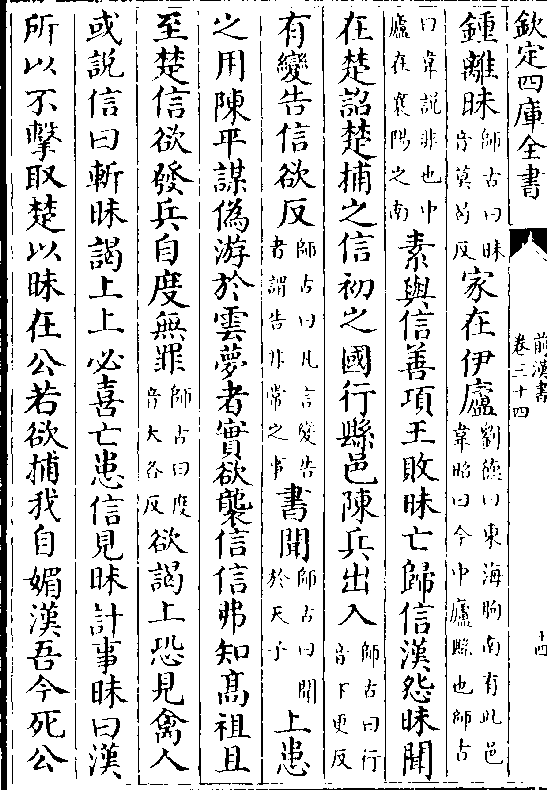 欽定四庫全書
前漢書
卷三十四
十四
鍾離眜師古曰眜音莫曷反家在伊廬劉德曰東海朐南有此邑韋昭曰今中廬縣也師古
曰韋説非也中廬在襄陽之南素與信善項王敗眜亡歸信漢怨眜聞
在楚詔楚捕之信初之國行縣邑陳兵出入師古曰行音下更反
有變告信欲反師古曰凡言變告者謂告非常之事書聞師古曰聞於天子上患
之用陳平謀偽游於雲夢者實欲襲信信弗知髙祖且
至楚信欲發兵自度無罪師古曰度音大各反欲謁上恐見禽人
或説信曰斬眜謁上上必喜亡患信見眜計事眜曰漢
所以不擊取楚以眜在公若欲捕我自媚漢吾今死公